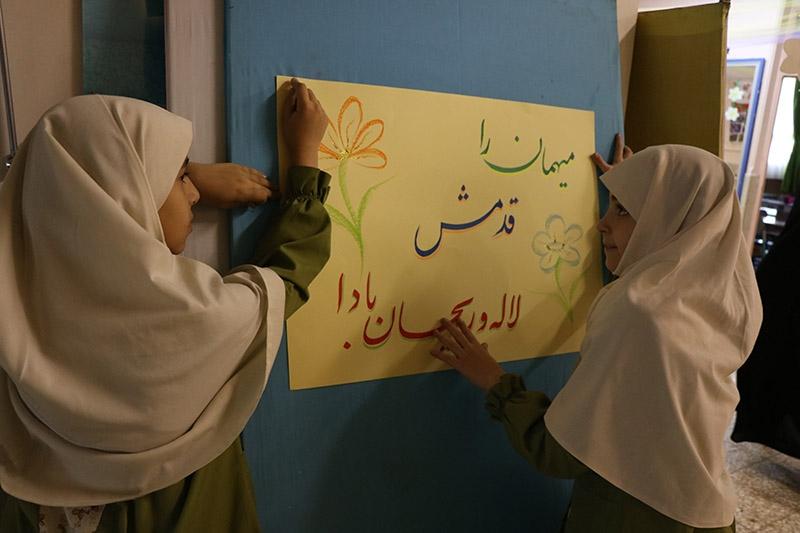 میهمان را
قدمش
لاله و ریحان بادا